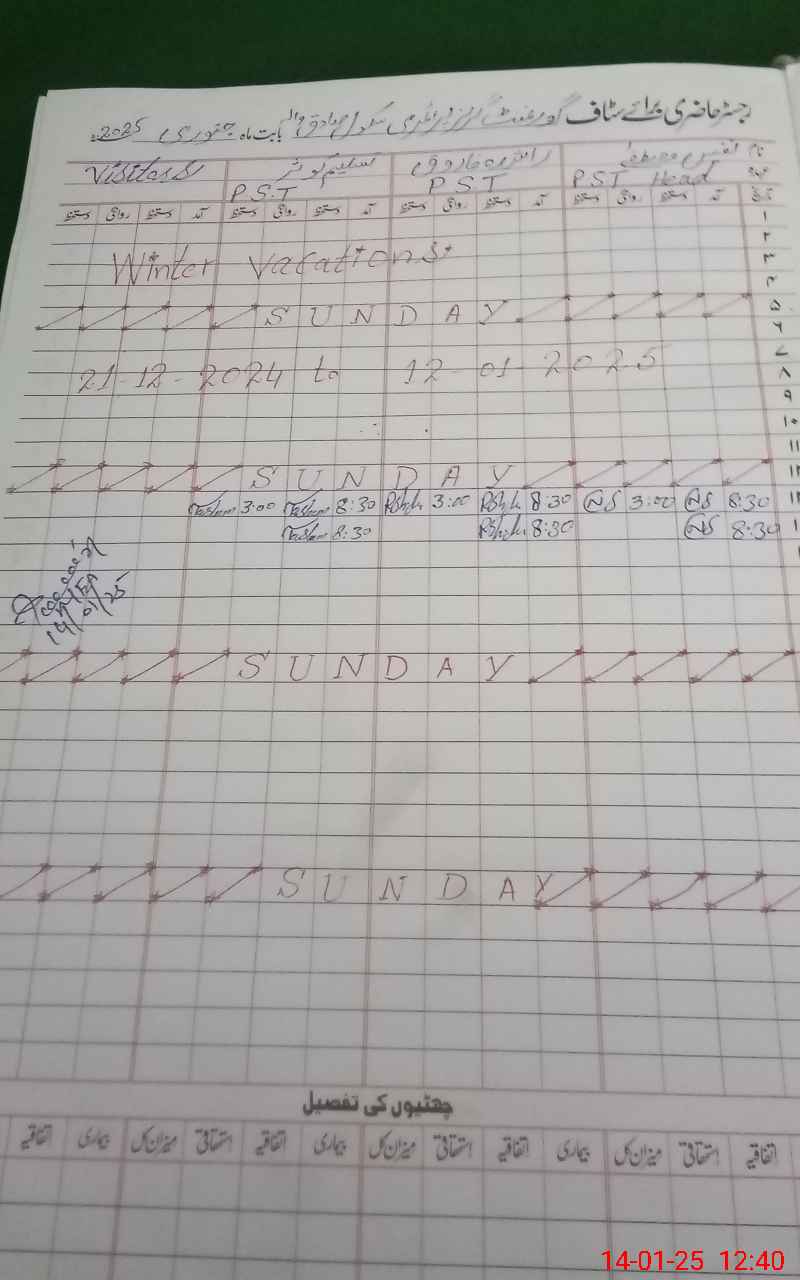 رجسٹر حاضری برائے سٹاف گورنمنٹ گرلز پرائمری سکول بابت ماہ جنوری 2025
نام نفیس مصطفیٰ رائزہ فاروق تسلیم کوثر Visitors
عہدہ P.S.T Head P.S.T P.S.T
تاریخ آمد دستخط روانگی دستخط آمد دستخط روانگی دستخط آمد دستخط روانگی دستخط آمد دستخط روانگی دستخط
۱
۲
Winter Vacations
۳
۴
۵ SUNDAY
۶
۷
21-12-2024 to 12-01-2025
۸
۹
۱۰
۱۱
SUNDAY
3:00 8:30 3:00 8:30 NS 3:00 NS 8:30
8:30 8:30 NS 8:30
AEA
14/01/25
SUNDAY
SUNDAY
چھٹیوں کی تفصیل
اتفاقیہ استحقاقی میزان کل بیماری اتفاقیہ استحقاقی میزان کل بیماری اتفاقیہ استحقاقی میزان کل بیماری اتفاقیہ
14-01-25 12:40